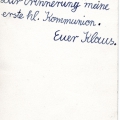 Zur Erinnerung meine
erste hl. Kommunion.
Euer Klaus.